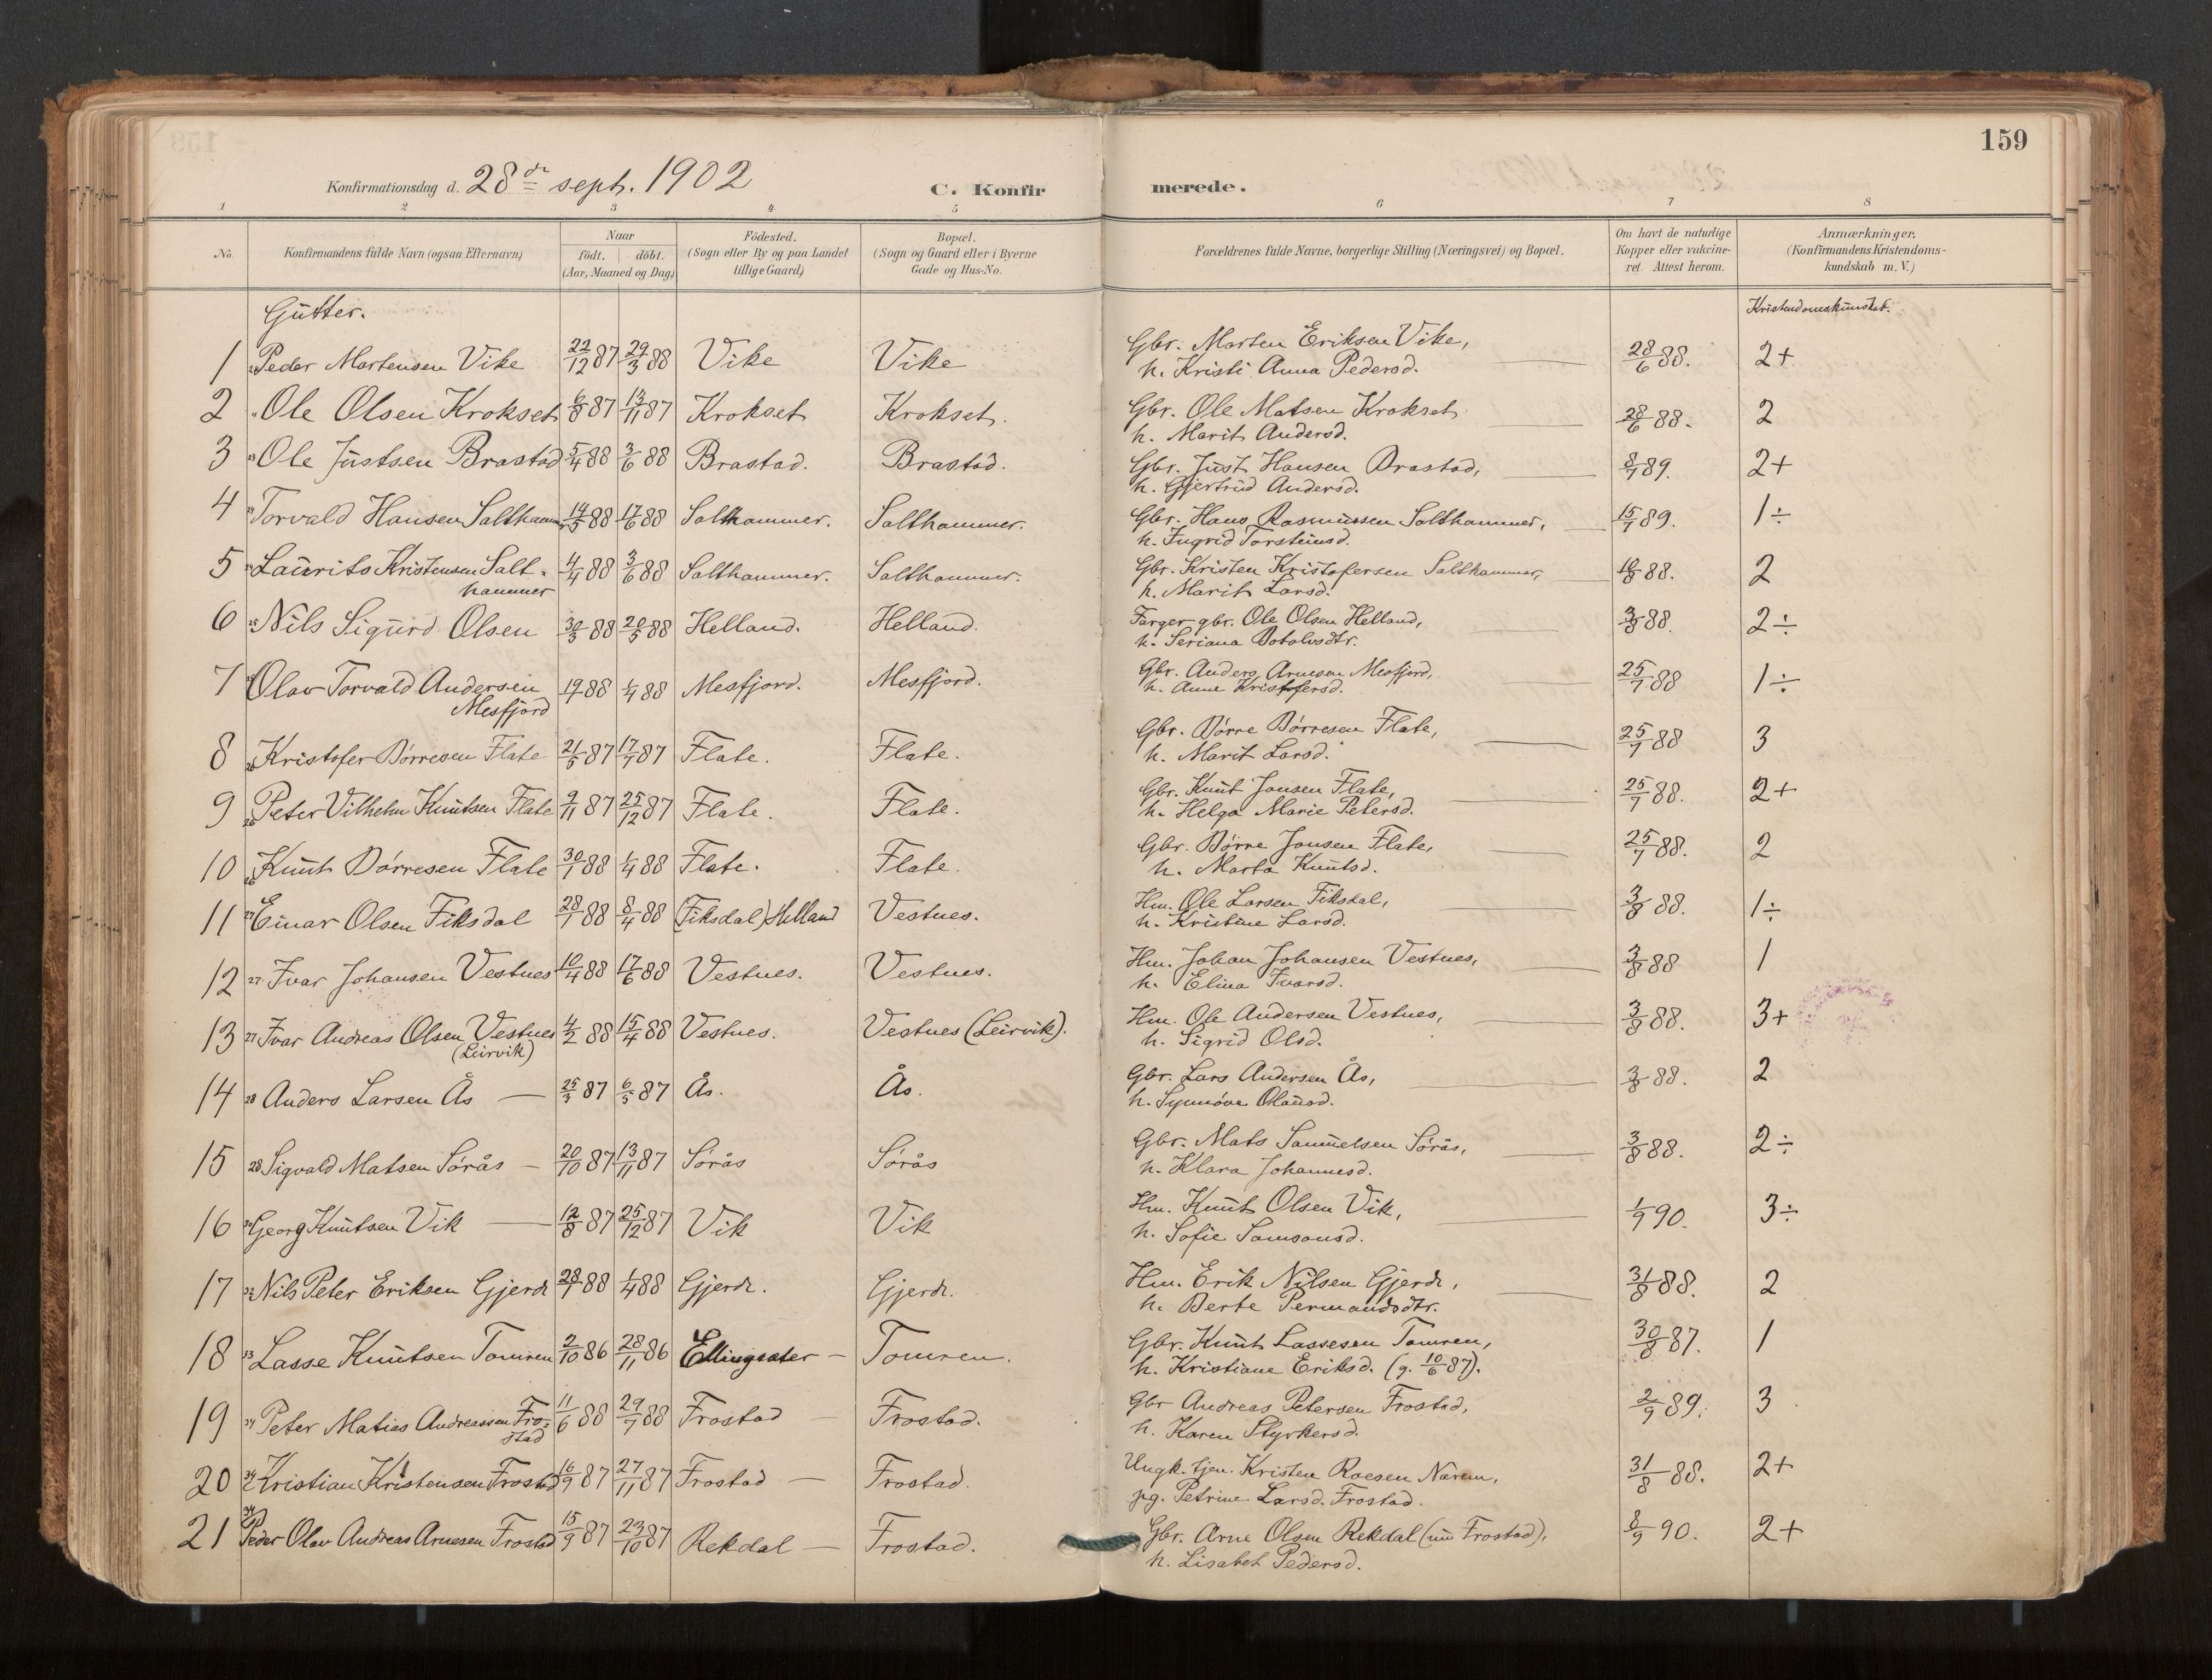 159
Konfirmationsdag d. 28de sept. 1902 C. Konfirmerede.
1 2 3 4 5 6 7 8
No. Konfirmandens fulde Navn (ogsaa Efternavn) Naar födt. döbt. (Aar, Maaned og Dag) Födested. (Sogn eller By og paa Landet tillige Gaard) Bopæl. (Sogn og Gaard eller i Byerne Gade og Hus-No. Forældrenes fulde Navne, borgerlige Stilling (Næringsvei) og Bopæl. Om havt de naturlige Kopper eller vakcineret Attest herom. Anmærkninger. (Konfirmandens Kristendomskundskab m. V.)
Gutter. Kristendomskunsk.
1 Peder Martensen Vike 22/12 87 29/3 88 Vike Vike Gbr. Marten Eriksen Vike, 28/6 88. 2+
h. Kristi Anna Pedersd.
2 Ole Olsen Krokset 6/8 87 13/11 87 Krokset Krokset. Gbr. Ole Matsen Krokset 28/6 88. 2
h. Marit Andersd.
3 Ole Justsen Brastad 5/4 88 3/6 88 Brastad. Brastad. Gbr. Just Hansen Brastad, 8/7 89. 2+
h. Gjertrud Andersd.
4 Torvald Hansen Salthammer 14/5 88 17/6 88 Salthammer. Salthammer. Gbr. Hans Rasmussen Salthammer, 15/7 89. 1÷
h. Ingrid Torsteinsd.
5 Laurits Kristensen Salthammer 4/4 88 3/6 88 Salthammer. Salthammer. Gbr. Kristen Kristofersen Salthammer, 88. 2
h. Marit Larsd.
6 Nils Sigurd Olsen 30/3 88 20/5 88 Helland. Helland. Farger gbr. Ole Olsen Helland, 3/8 88. 2÷
h. Seriana Botolvsdtr.
7 Olav Torvald Andersen Mesfjord 88 1/4 88 Mesfjord. Mesfjord. Gbr. Anders Arnesen Mesfjord, 25/7 88 1÷
h. Anne Kristofersd.
8 26 Kristofer Børresen Flate 21/5 87 17/7 87 Flate. Flate. Gbr. Børre Børresen Flate, 25/7 88 3
h. Marit Larsd.
9 26 Peter Vilhelm Knutsen Flate 9/11 87 25/12 87 Flate. Flate. Gbr. Knut Jonsen Flate, 25/7 88. 2+
h. Helga Marie Petersd.
10 26 Knut Børresen Flate 30/1 88 1/4 88 Flate. Flate. Gbr. Børre Jonsen Flate, 25/7 88. 2
h. Marta Knutsd.
11 27 Einar Olsen Fiksdal 28/1 88 8/4 88 (Fiksdal) Helland Vestnes. Hm. Ole Larsen Fiksdal, 3/8 88. 1÷
h. Kristine Larsd.
12 27 Ivar Johansen Vestnes 10/4 88 17/6 88 Vestnes. Vestnes. Hm. Johan Johansen Vestnes, 3/8 88 1
h. Elina Ivarsd.
13 27 Ivar Andreas Olsen Vestnes (Leirvik) 4/2 88 15/4 88 Vestnes. Vestnes (Leirvik). Hm. Ole Andersen Vestnes, 3/8 88. 3+
h. Sigrid Olsd.
14 28 Anders Larsen Ås — 25/3 87 6/5 87 Ås. Ås. Gbr. Lars Andersen Ås, 3/8 88. 2
h. Synnøve Olausd.
15 28 Sigvald Matsen Sørås — 20/10 87 13/11 87 Sørås Sørås Gbr. Mats Samuelsen Sørås, 3/8 88. 2÷
h. Klara Johannesd.
16 Georg Knutsen Vik — 12/8 87 25/12 87 Vik Vik Hm. Knut Olsen Vik, 1/9 90. 3÷
h. Sofie Samsonsd.
17 32 Nils Peter Eriksen Gjerde 28/1 88 1/4 88 Gjerde. Gjerde. Hm. Erik Nilsen Gjerde, 31/8 88. 2
h. Berte Permandsdtr.
18 33 Lasse Knutsen Tomren 2/10 86 28/11 86 Ellingsæter — Tomren. Gbr. Knut Lassesen Tomren, 30/8 87. 1
h. Kristiane Eriksd. (g. 10/6 87).
19 34 Peter Matias Andreassen Frostad 11/6 88 29/7 88 Frostad — Frostad. Gbr Andreas Petersen Frostad, 2/9 89. 3
h. Karen Styrkersd.
20 34 Kristian Kristensen Frostad 16/9 87 27/11 87 Frostad — Frostad. Ungk. tjen. Kristen Roesen Nærem, 31/8 88. 2+
pg. Petrine Larsd. Frostad.
21 34 Peder Olav Andreas Arnesen Frostad 15/9 87 23/10 87 Rekdal — Frostad. Gbr. Arne Olsen Rekdal (nu Frostad), 8/9 90. 2+
h. Lisabet Pedersd.